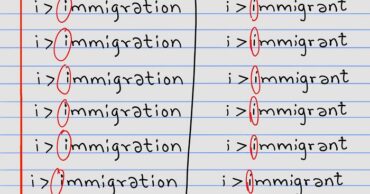 i > immigration i > immigrant
i > immigration i > immigrant
i > immigration i > immigrant
i > immigration i > immigrant
i > immigration i > immigrant
i > immigration i > immigrant